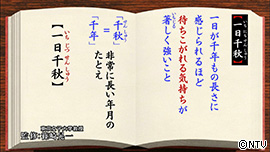 【一日千秋】
一日が千年もの長さに
感じられるほど
待ちこがれる気持ちが
著しく強いこと
「千秋」
=
「千年」
非常に長い年月の
たとえ
【一日千秋】
いちじつせんしゅう
監修:篠崎晃一
©NTV